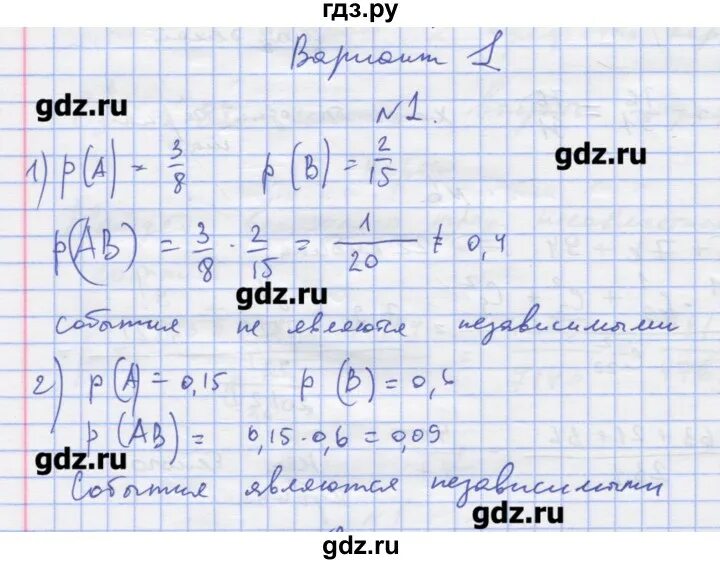 гдз.ру
Вариант 1
gdz.ru
№1.
1) p(A) = 3/8 p(B) = 2/15
gdz.ru
p(AB) = 3/8 · 2/15 = 1/20 ≠ 0,4
gdz.ru
События не являются независимыми
2) p(A) = 0,15 p(B) = 0,6
p(AB) = 0,15·0,6 = 0,09
gdz.ru
События являются независимыми
gdz.ru
gdz.ru